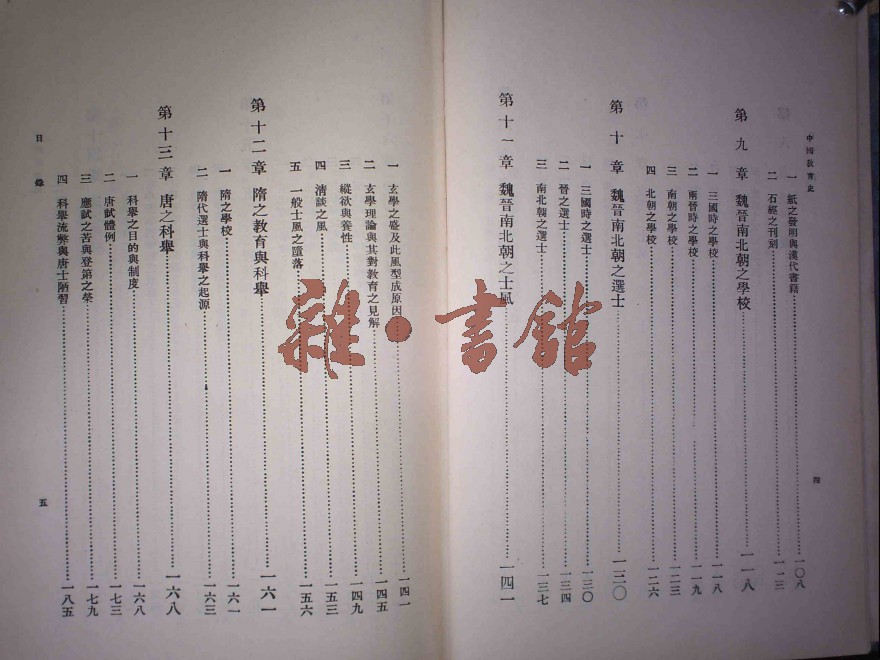 中國敎育史
四
一 紙之發明與漢代書籍………一〇八
二 石經之刊刻………一一三
第九章 魏晉南北朝之學校………一一八
一 三國時之學校………一一八
二 兩晉時之學校………一一九
三 南朝之學校………一二三
四 北朝之學校………一二六
第十章 魏晉南北朝之選士………一三〇
一 三國時之選士………一三〇
二 晉之選士………一三四
三 南北朝之選士………一三七
第十一章 魏晉南北朝之士風………一四一
一 玄學之盛及此風型成原因………一四一
二 玄學理論與其對敎育之見解………一四五
三 縱欲與養性………一四九
四 清談之風………一五三
五 一般士風之墮落………一五六
第十二章 隋之敎育與科舉………一六一
一 隋之學校………一六一
二 隋代選士與科舉之起源………一六三
第十三章 唐之科舉………一六八
一 科舉之目的與制度………一六八
二 唐試體例………一七三
三 應試之苦與登第之榮………一七九
四 科舉流弊與唐士陋習………一八五
目錄
五
雜·書館